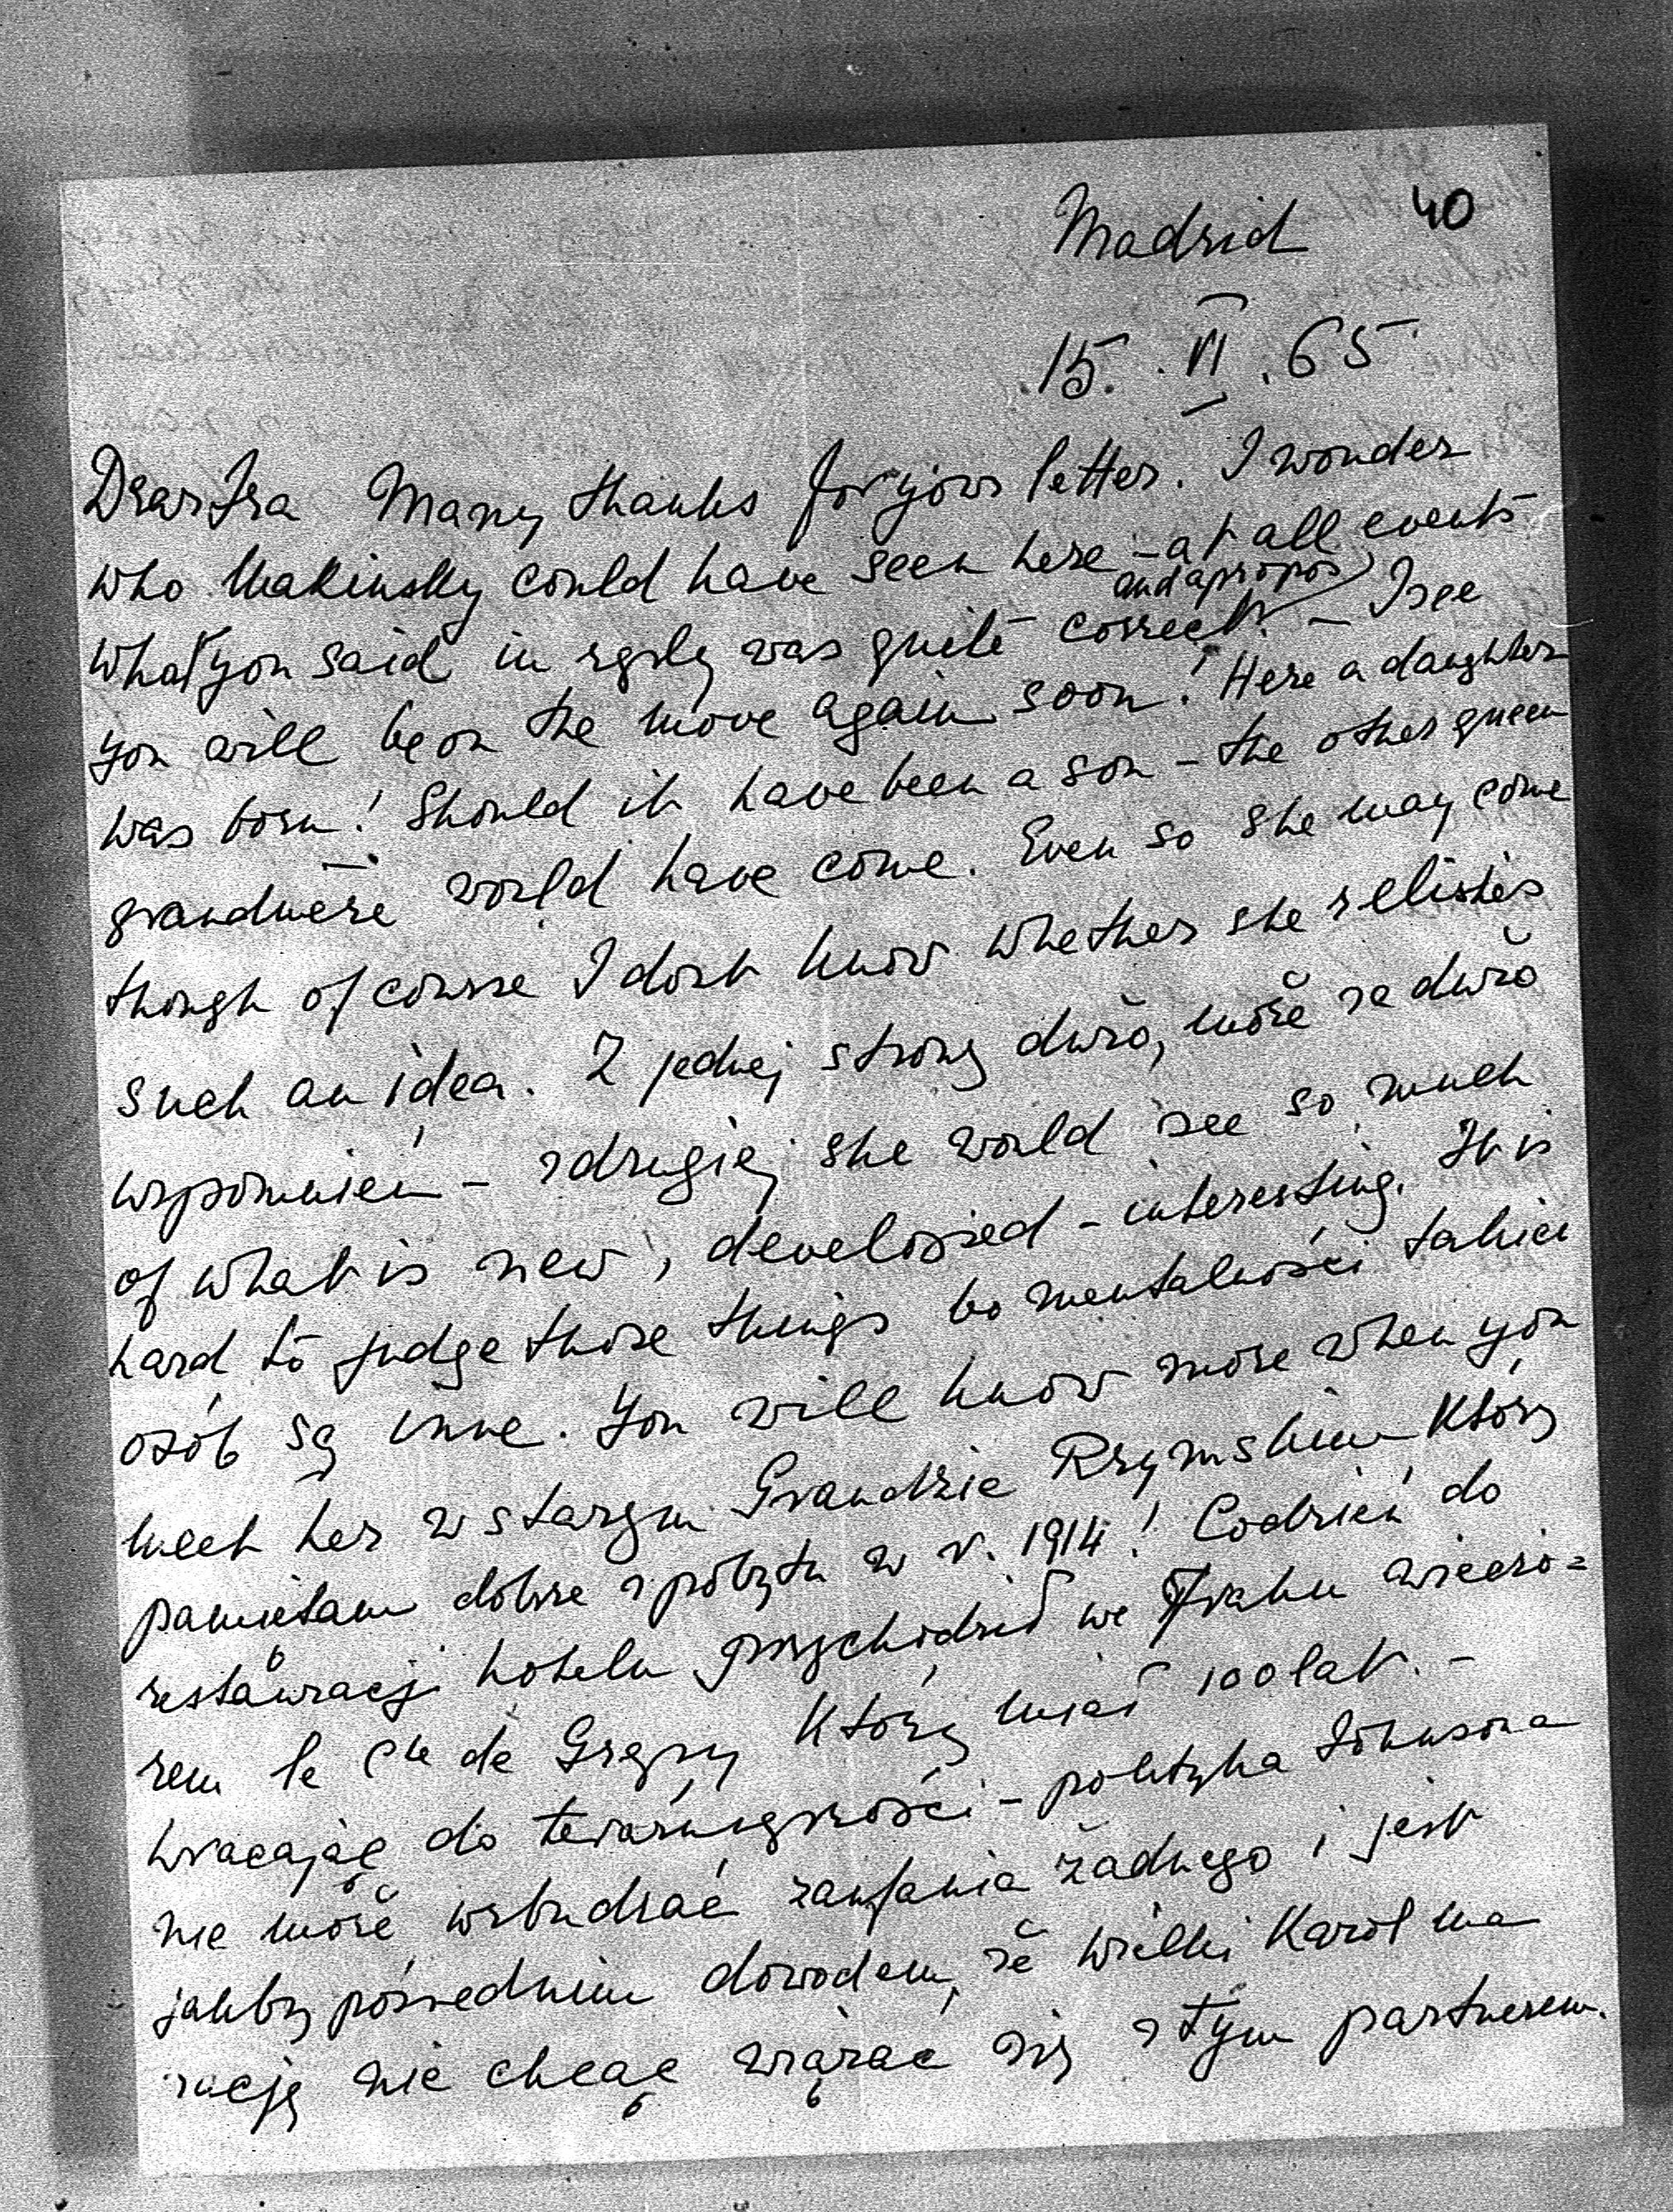 Madrid 40
15. VI. 65
Dear Ira Many thanks for your letter. I wonder
who Makinsky could have seen here - at all events
and apropos
what you said in reply was quite correct. - I see
you will be on the move again soon! Here a daughter
was born! Should it have been a son - the other queen
grandmère would have come. Even so she may come
though of course I dont know whether she relishes
such an idea. Z jednej strony dużo, może za dużo
wspomnień - z drugiej she would see so much
of what is new, developed - interesting. It is
hard to judge those things bo mentalności takich
osób są inne. You will know more when you
meet her w starym Grandzie Rzymskim który
pamiętam dobrze z pobytu w r. 1914! Codzień do
restauracji hotelu przychodził we fraku wieczo=
rem le Cte de Grepy który miał 100 lat. -
Wracając do teraźniejszości - polityka Johnsona
nie może wzbudzać zaufania żadnego i jest
jakby pośrednim dowodem, że Wielki Karol ma
rację nie chcąc wiązać się z tym partnerem.